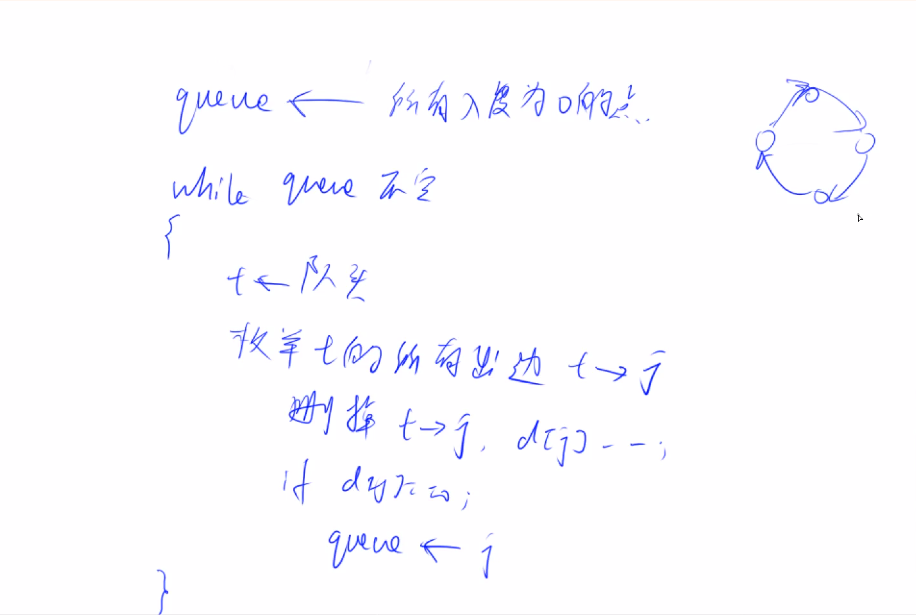 queue ← 所有入度为0的点.
while queue 不空
{
t ← 队头
枚举t的所有出边 t→j
删掉 t→j, d[j]--;
if d[j]==0;
queue ← j
}